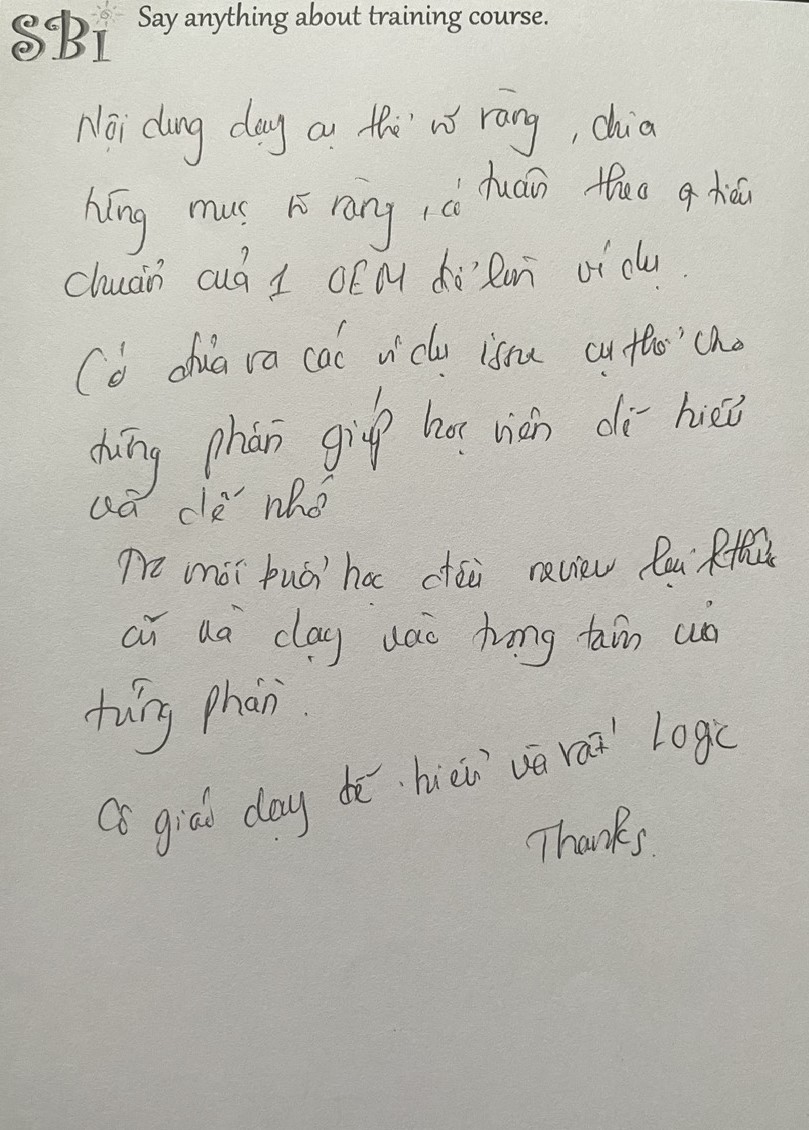 SBI Say anything about training course.
Nội dung dạy cụ thể rõ ràng, chia
từng mục rõ ràng, có tuân theo q tiêu
chuẩn của 1 OEM để làm ví dụ.
Có đưa ra các ví dụ issue cụ thể cho
từng phần giúp học viên dễ hiểu
và dễ nhớ
mỗi buổi học đều review lại kthức
cũ và dạy vào trọng tâm của
từng phần.
Cô giáo dạy dễ hiểu và rất Logic
Thanks.